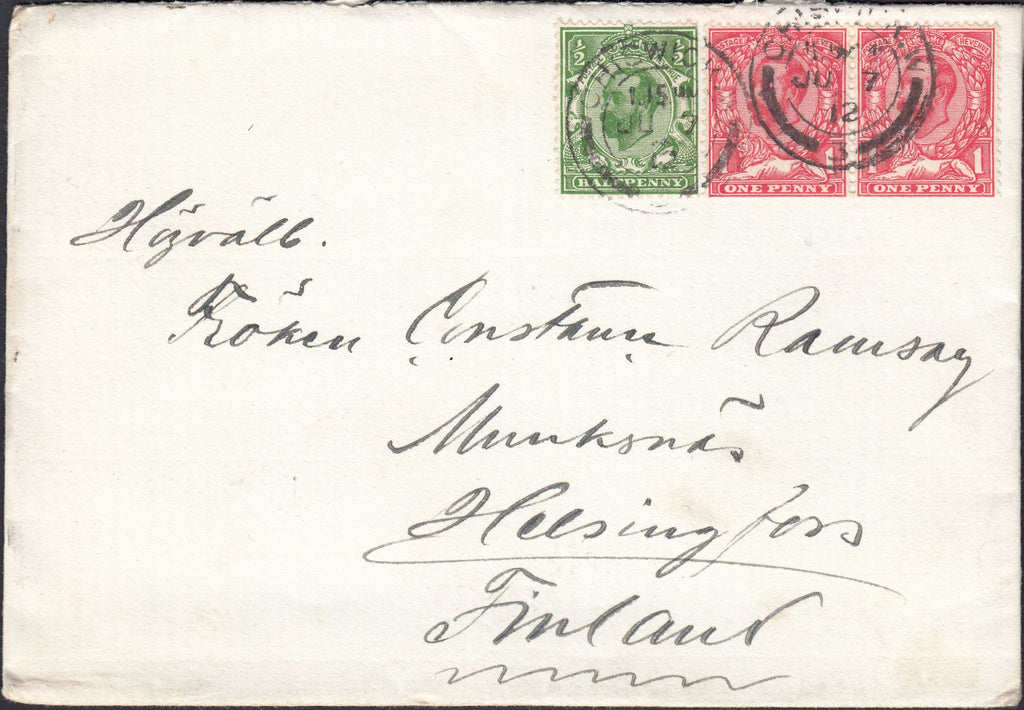 ½ ½
HALFPENNY
POSTAGE REVENUE
ONE PENNY 1
REVENUE
ONE PENNY 1
CHISWICK
JU 7
12
JU 7
12
Högvälb.
Fröken Constance Ramsay
Munksnäs
Helsingfors
Finland